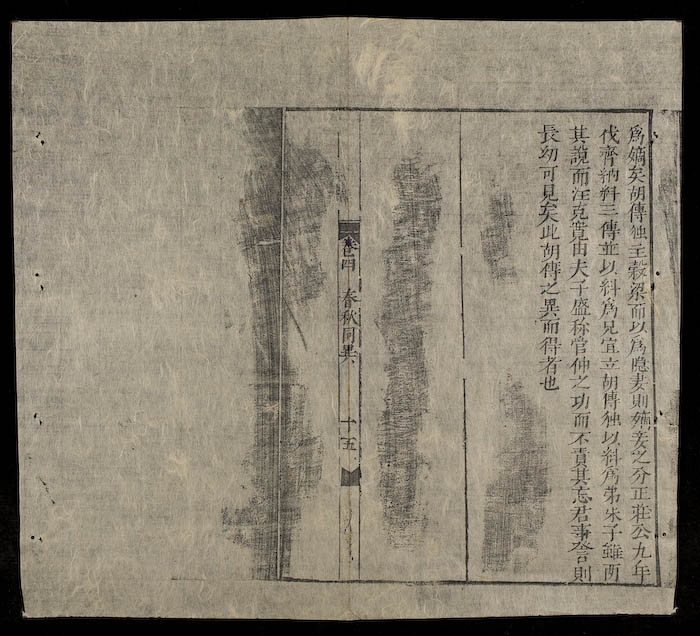 爲嫡矣胡傳独主穀梁而以爲隐妻則嫡妾之分正莊公九年
伐齊納糾三傳並以糾爲兄宜立胡傳独以糾爲弟朱子雖两
其說而汪克寬由夫子盛称管仲之功而不責其忘君事讐言則
長幼可見矣此胡傳之異而得者也
卷四 春秋同異 十五